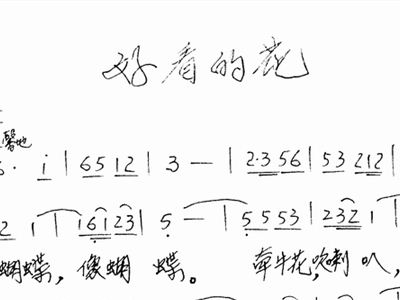 好看的花
馨地
· i | 65 12 | 3 — | 2·3 56 | 53 212 |
2 1 | 1 6 i 2 3 | 5 — | 5 5 5 3 | 232 1 |
蝴蝶，像蝴 蝶。 牵牛花，吹喇叭，